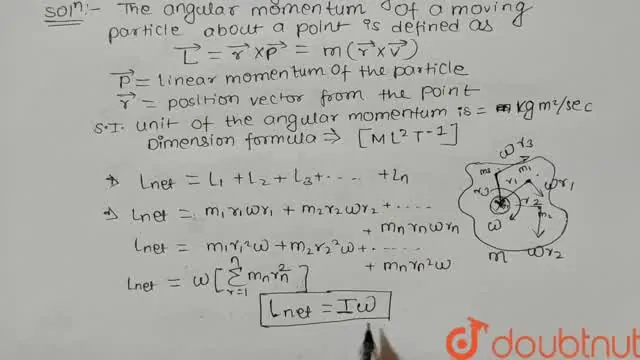 SOlⁿ:- The angular momentum of a moving
particle about a point is defined as
L⃗ = r⃗ × P⃗ = m(r⃗ × V⃗)
P⃗ = linear momentum of the particle
r⃗ = position vector from the point
S.I. unit of the angular momentum is = kgm²/sec
Dimension formula ⇒ [ML²T⁻¹]
⇒ Lnet = L₁ + L₂ + L₃ + ····· + Ln
⇒ Lnet = m₁r₁ωr₁ + m₂r₂ωr₂ + ·····
+ mnrnωrn
Lnet = m₁r₁²ω + m₂r₂²ω + ·····
+ mnrn²ω
Lnet = ω[∑ⁿᵣ₌₁ mnrn²]
Lnet = Iω
ωr₃
m₃
m₁
r₁
r₃
ωr₁
r₂
m₂
ω
m
ωr₂
doubtnut